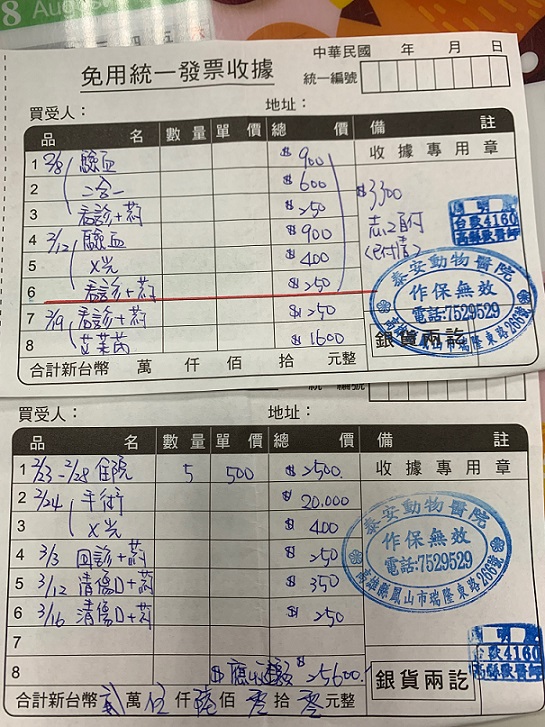 8 Augus
4 5
中華民國 年 月 日
免用統一發票收據
統一編號
買受人： 地址：
品 名 數 量 單 價 總 價 備 註
1 2/8 驗血 $900 收據專用章
2 二合一 $600
3 看診+葯 $250 $3300
4 2/12 驗血 $900
5 X光 $400
6 看診+葯 $250
7 2/19 看診+葯 $250
8 $1600
合計新台幣 萬 仟 佰 拾 元整 銀貨兩訖
台獸4160
高縣獸醫師
泰安動物醫院
作保無效
電話:7529529
高雄縣鳳山市瑞隆東路266號
買受人： 地址：
品 名 數 量 單 價 總 價 備 註
1 2/23-2/28 住院 5 500 $2500. 收據專用章
2 2/24 手術 $20.000
3 X光 $400
4 3/3 回診+葯 $250
5 3/12 清傷口+葯 $350
6 3/16 清傷口+葯 $250
7
8 $25600.
合計新台幣 貳 萬 伍 仟 佰 零 拾 零 元整 銀貨兩訖
泰安動物醫院
作保無效
電話:7529529
高雄縣鳳山市瑞隆東路266號
台獸4160
高縣獸醫師